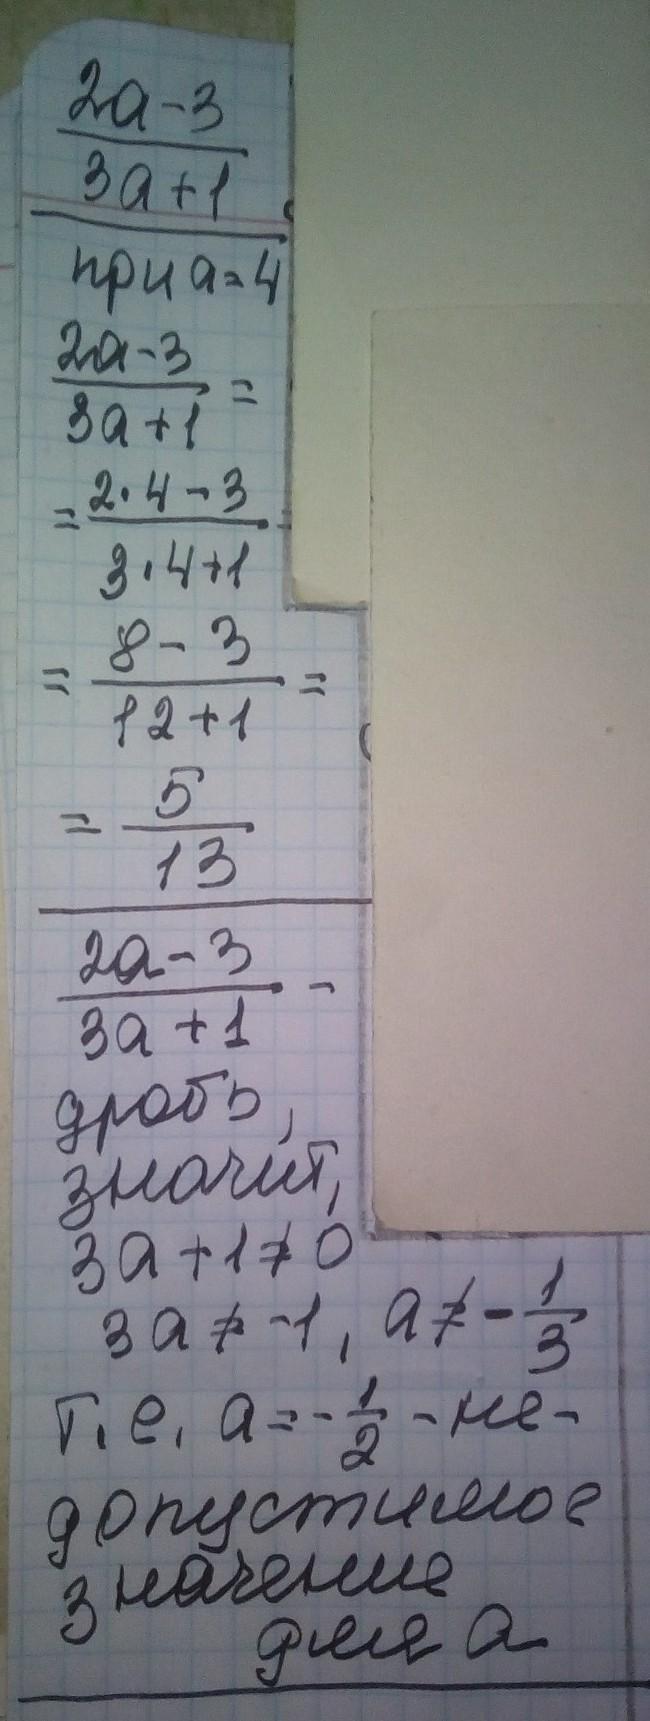 2a-3
3a+1
при a=4
2a-3
3a+1 =
= 2·4-3
3·4+1
= 8-3
12+1 =
= 5
13
2a-3
3a+1 -
дробь,
значит,
3a+1≠0
3a≠-1, a≠-1/3
т.е. a=-1/2 - не-
допустимое
значение
для a